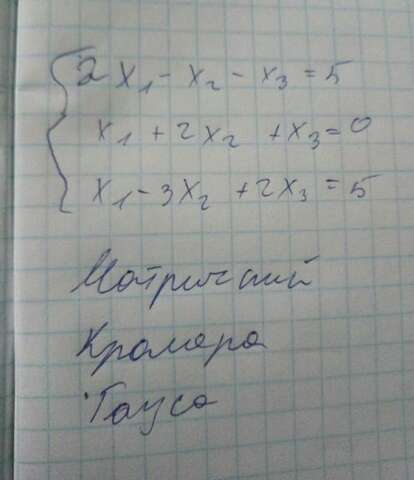 2x₁ - x₂ - x₃ = 5
x₁ + 2x₂ + x₃ = 0
x₁ - 3x₂ + 2x₃ = 5
Матричний
Крамера
Гауса